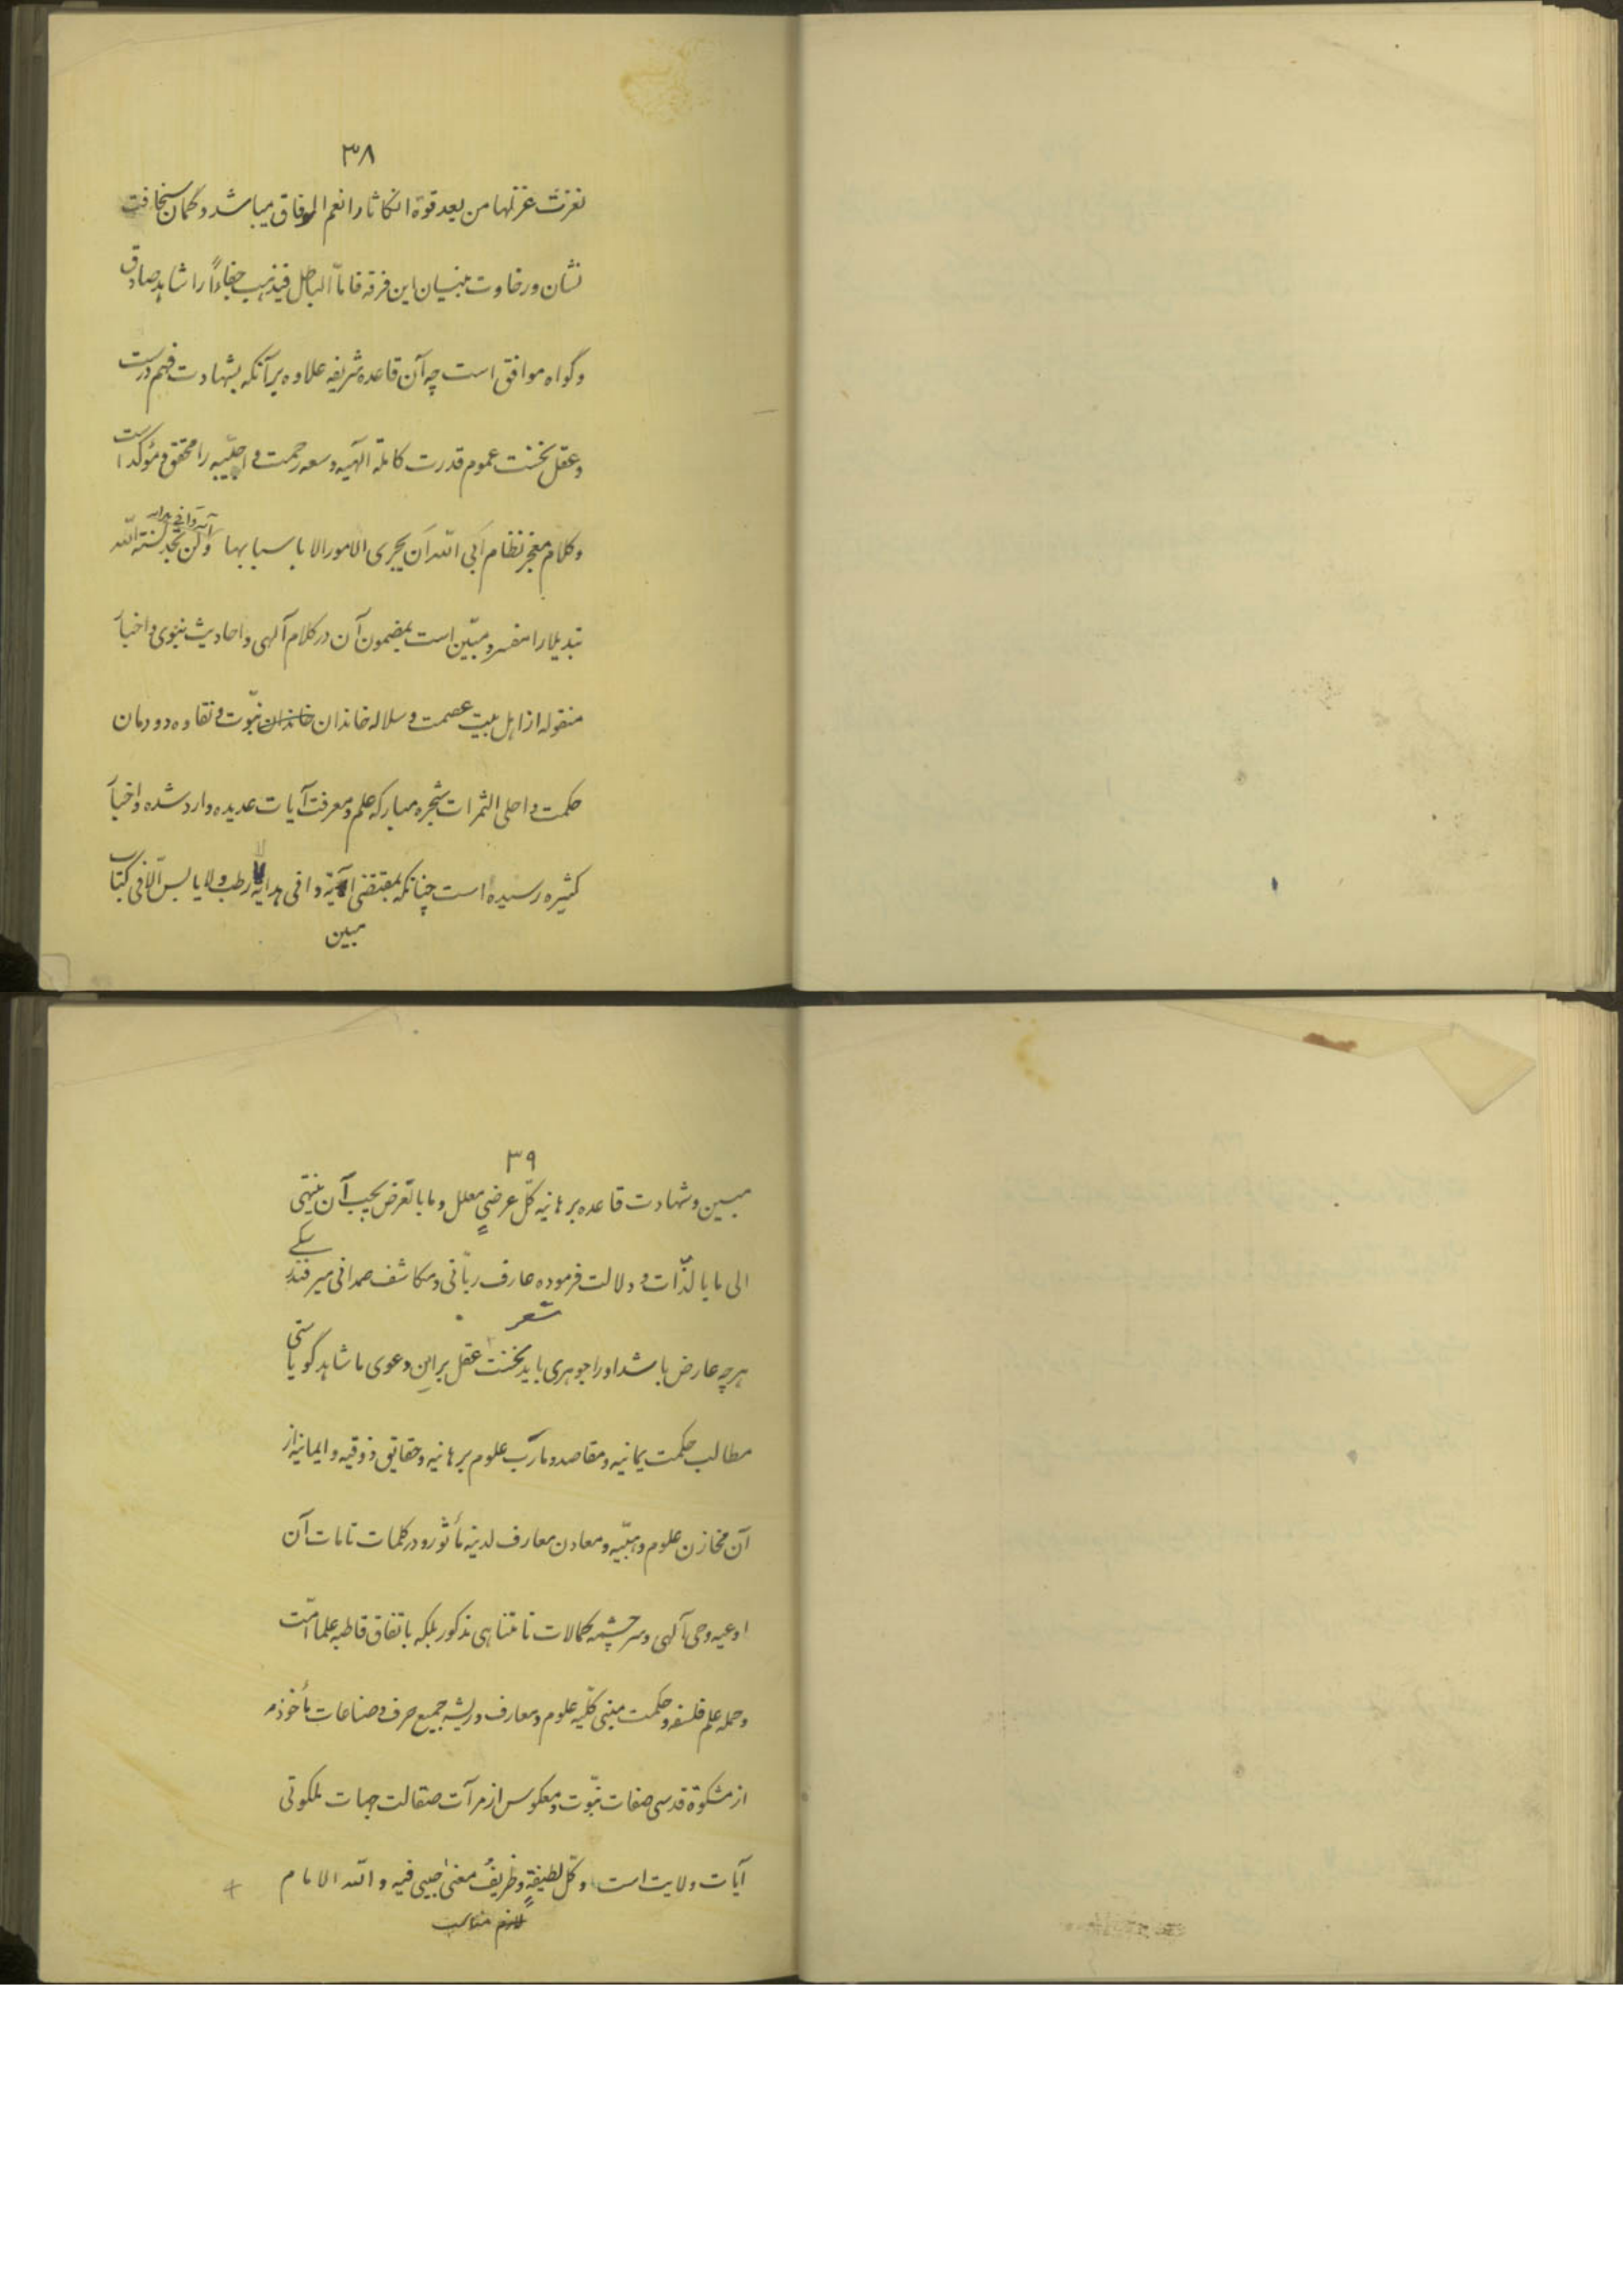 ۳۸
نغزت غزلها من بعد قوة انکاثا را نعم الوفاق میباشد و گمان سخافت
نشان و رخاوت بنیان این فرقه فاما الباطل فیذهب جفاءاً را شاهد صادق
و گواه موافق است چه آن قاعده شریفه علاوه بر آنکه بشهادت فهم درست
و عقل نخست عموم قدرت کامله آلهیه و سعه رحمت واجبیه را محقق و مؤکد است
و کلام معجز نظام اَبی الله اَن یجری الامور الا باسبابها و آیه وافی هدایه ولن تجد لسنة الله
تبدیلا را مفسر و مبیّن است بمضمون آن در کلام آلهی و احادیث نبوی و اخبار
منقوله از اهل بیت عصمت و سلاله خاندان خاندان نبّوت و نقاوه دودمان
حکمت و احلی الثمرات شجره مبارکه علم و معرفت آیات عدیده وارد شده و اخبار
کثیره رسیده است چنانکه بمقتضی آیة وافی هدایه لا رطب ولا یابس اّلا فی کتاب
مبین
۳۹
مبین و شهادت قاعده برهانیه کلّ عرضیٍ معلل و ما بالعّرض یجب آن ینتهی
الی ما بالذّات و دلالت فرموده عارف ربّانی و مکاشف صمدانی میر فندرسکی
شعر
هرچه عارض باشد او را جوهری باید نخست عقل براین دعوی ما شاهد گویاستی
مطالب حکمت یمانیه و مقاصد و مآرب علوم برهانیه و حقایق ذوقیه و ایمانیه از
آن مخازن علوم وهبّیه و معادن معارف لدنیه مأثور و در کلمات تامات آن
اوعیه وحی آلهی و سرچشمه کمالات نامتناهی مذکور بلکه باتفاق قاطبه علما امّت
و حمله علم فلسفه و حکمت مبنی کلّیه علوم و معارف و ریشه جمیع حرف و صناعات مأخوذ
از مشکوة قدسی صفات نبّوت و معکوس از مرآت صقالت جهات ملکوتی
آیات ولایت است و کّل لطیفةٍ و ظریفُ معنیٰ حبیبی فیه و الله الامام
لازم مناسب